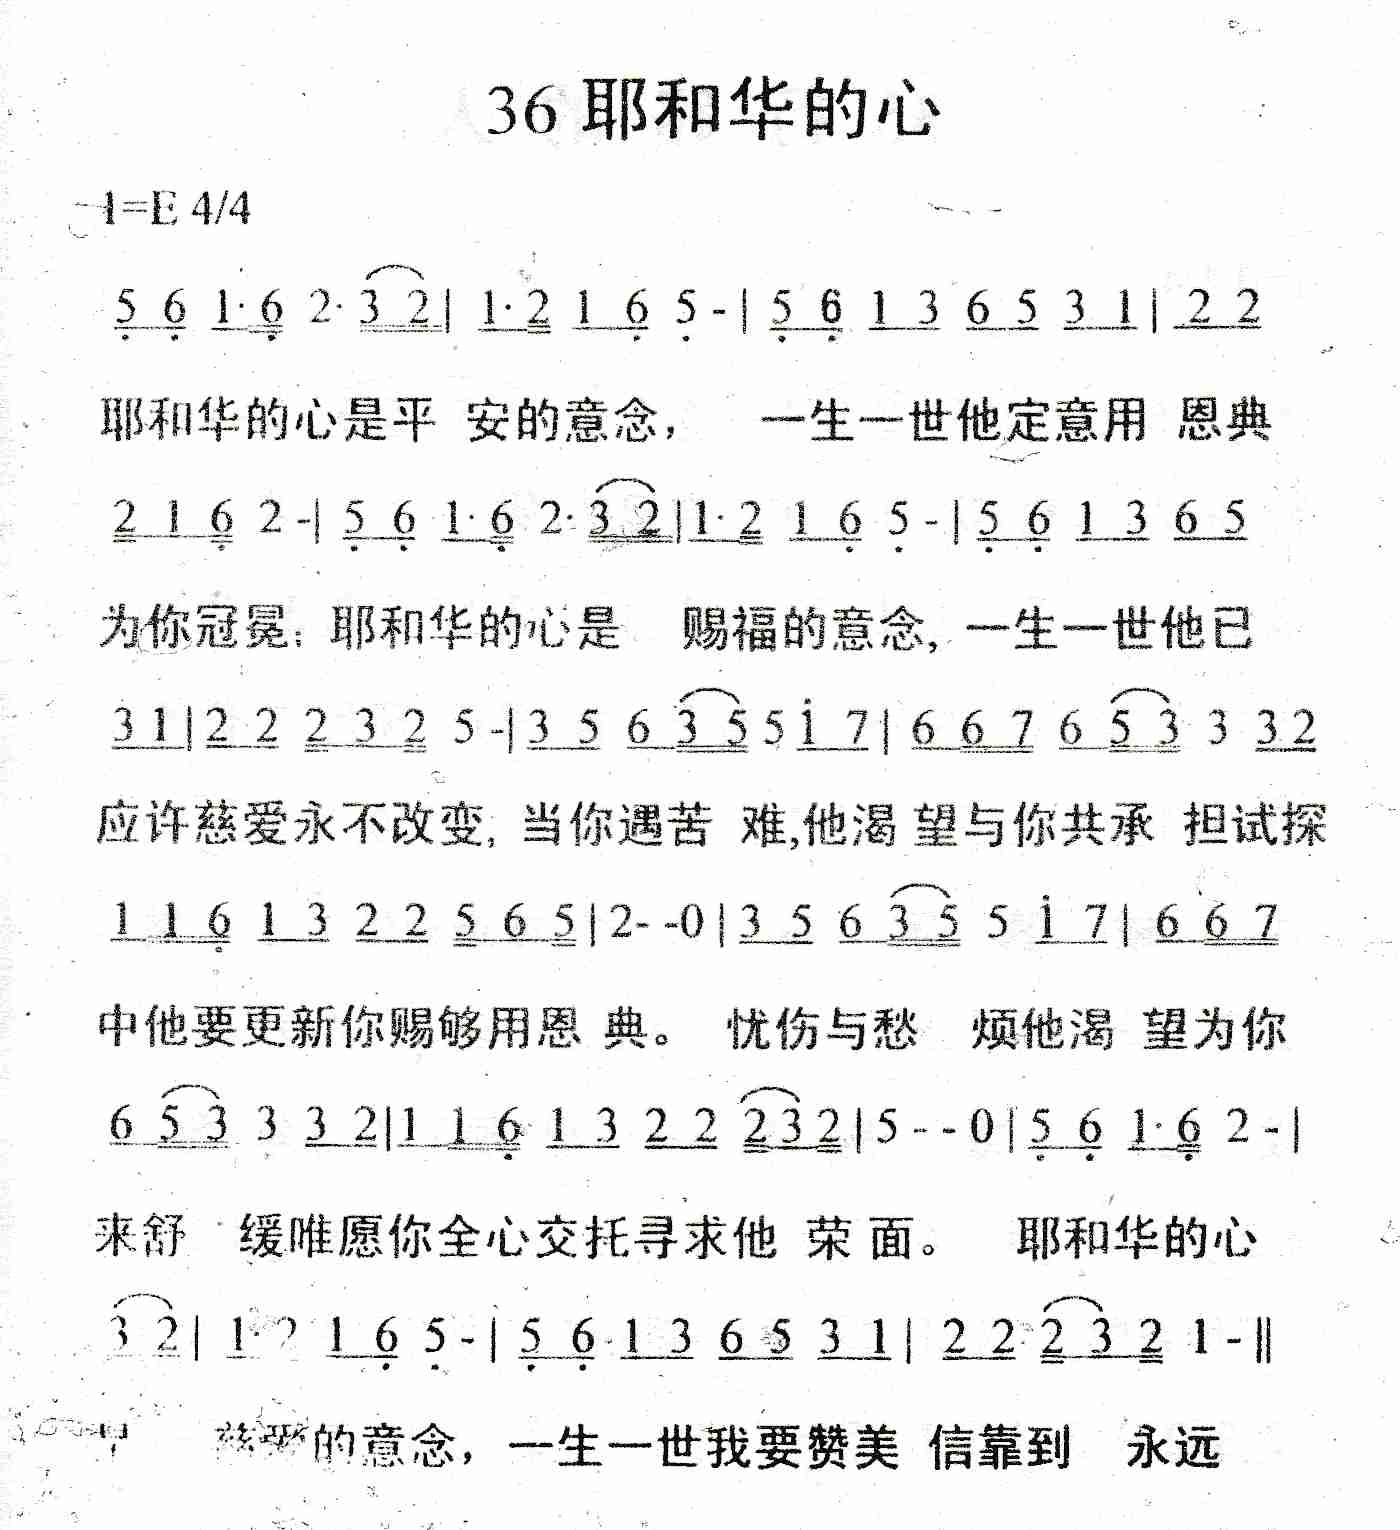 36 耶和华的心
1=E 4/4
5 6 1· 6 2· 3 2 | 1· 2 1 6 5 - | 5 6 1 3 6 5 3 1 | 2 2
耶和华的心是平 安的意念， 一生一世他定意用 恩典
2 1 6 2 - | 5 6 1· 6 2· 3 2 | 1· 2 1 6 5 - | 5 6 1 3 6 5
为你冠冕; 耶和华的心是 赐福的意念, 一生一世他已
3 1 | 2 2 2 3 2 5 - | 3 5 6 3 5 5 i 7 | 6 6 7 6 5 3 3 3 2
应许慈爱永不改变, 当你遇苦 难,他渴 望与你共承 担试探
1 1 6 1 3 2 2 5 6 5 | 2 - - 0 | 3 5 6 3 5 5 i 7 | 6 6 7
中他要更新你赐够用恩 典。 忧伤与愁 烦他渴 望为你
6 5 3 3 3 2 | 1 1 6 1 3 2 2 2 3 2 | 5 - - 0 | 5 6 1· 6 2 - |
来舒 缓唯愿你全心交托寻求他 荣 面。 耶和华的心
3 2 | 1· 2 1 6 5 - | 5 6 1 3 6 5 3 1 | 2 2 2 3 2 1 - ‖
慈爱的意念，一生一世我要赞美 信靠到 永远